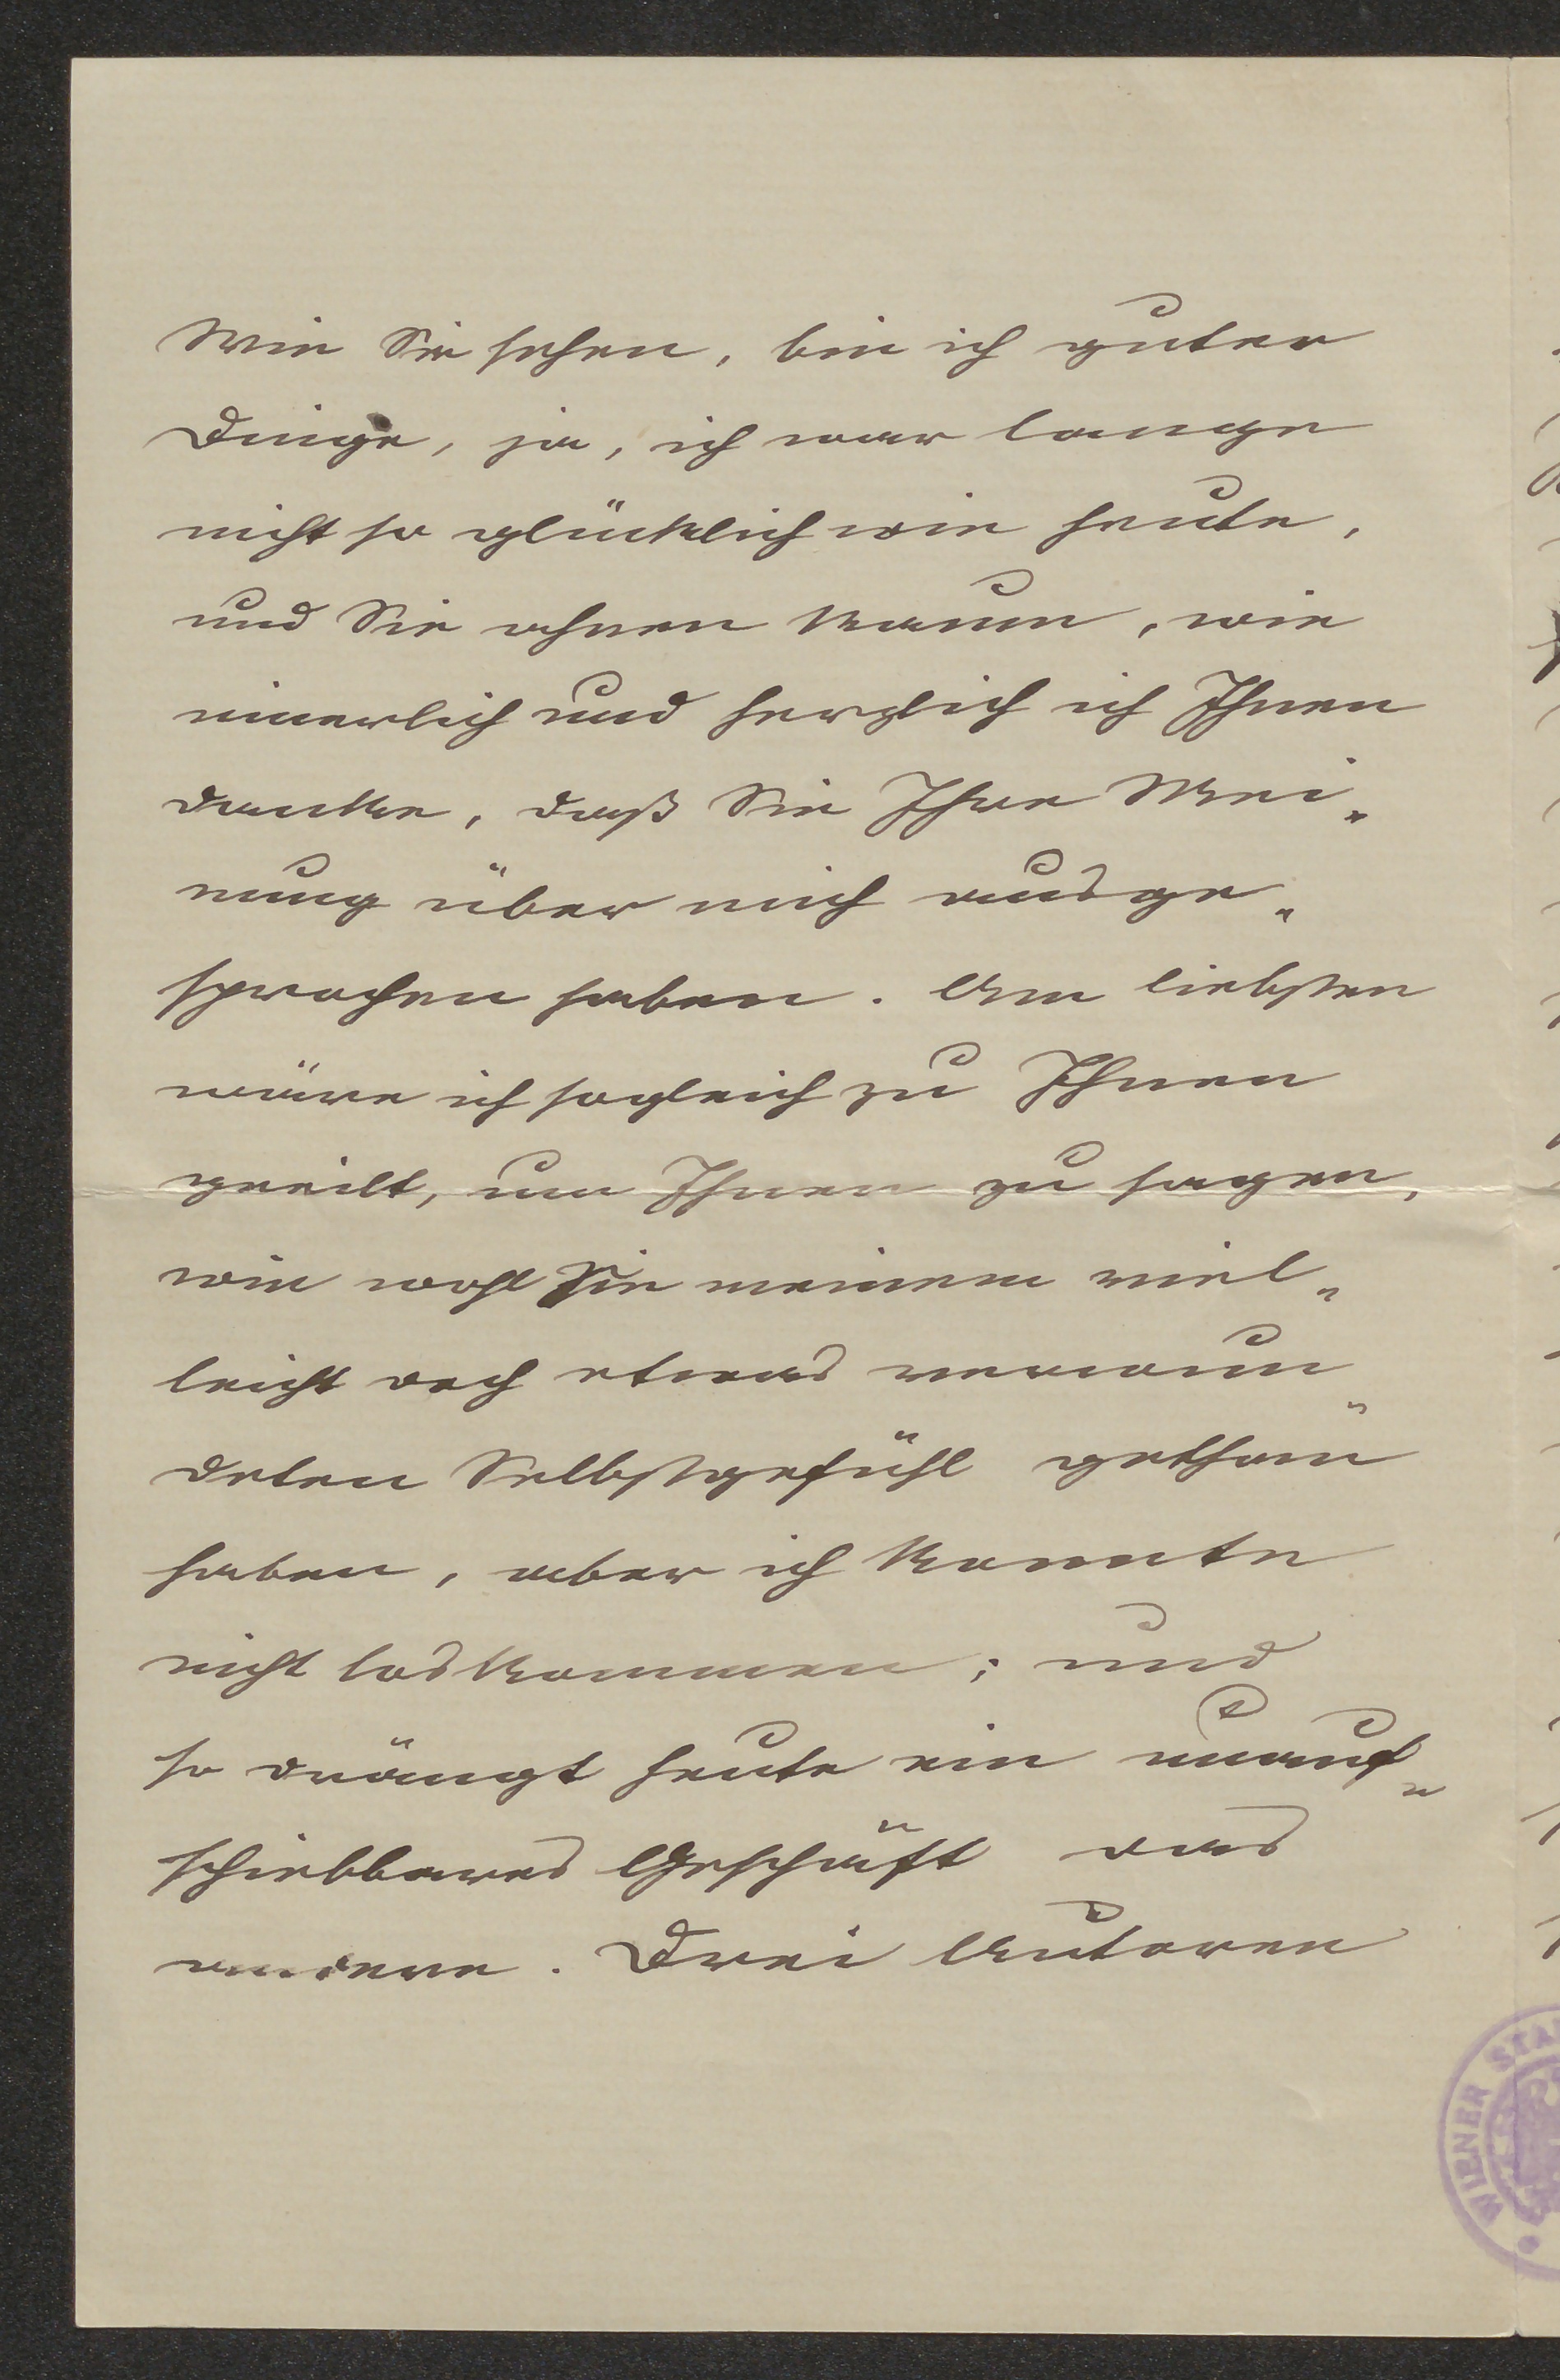 Wie Sie sehen, bin ich guter
Dinge, ja, ich war lange
nicht so glücklich wie heute,
und Sie ahnen kaum, wie
innerlich und herzlich ich Ihnen
danke, daß Sie Ihre Mei„
nung über mich ausge„
sprochen haben. Am liebsten
wäre ich sogleich zu Ihnen
geeilt, um Ihnen zu sagen,
wie wohl Sie meinem viel„
leicht doch etwas verwun„
deten Selbstgefühl gethan
haben, aber ich konnte
nicht loskommen; und
so drängt heute ein unauf„
schiebbares Geschäft das
andere. Drei Autoren
WIENER STA